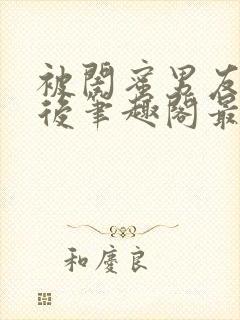 被閨蜜男友
後筆趣閣最
和慶良